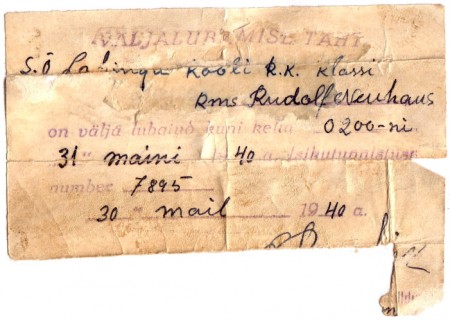 VÄLJALUBAMISE TÄHT
S.Õ Lahingu kooli R.K. klassi
rms Rudolf Neuhaus
on välja lubatud kuni kella 0200-ni.
"31" maini 1940 a. Isikutunnistuse
number 7895
30 " mail 1940 a.